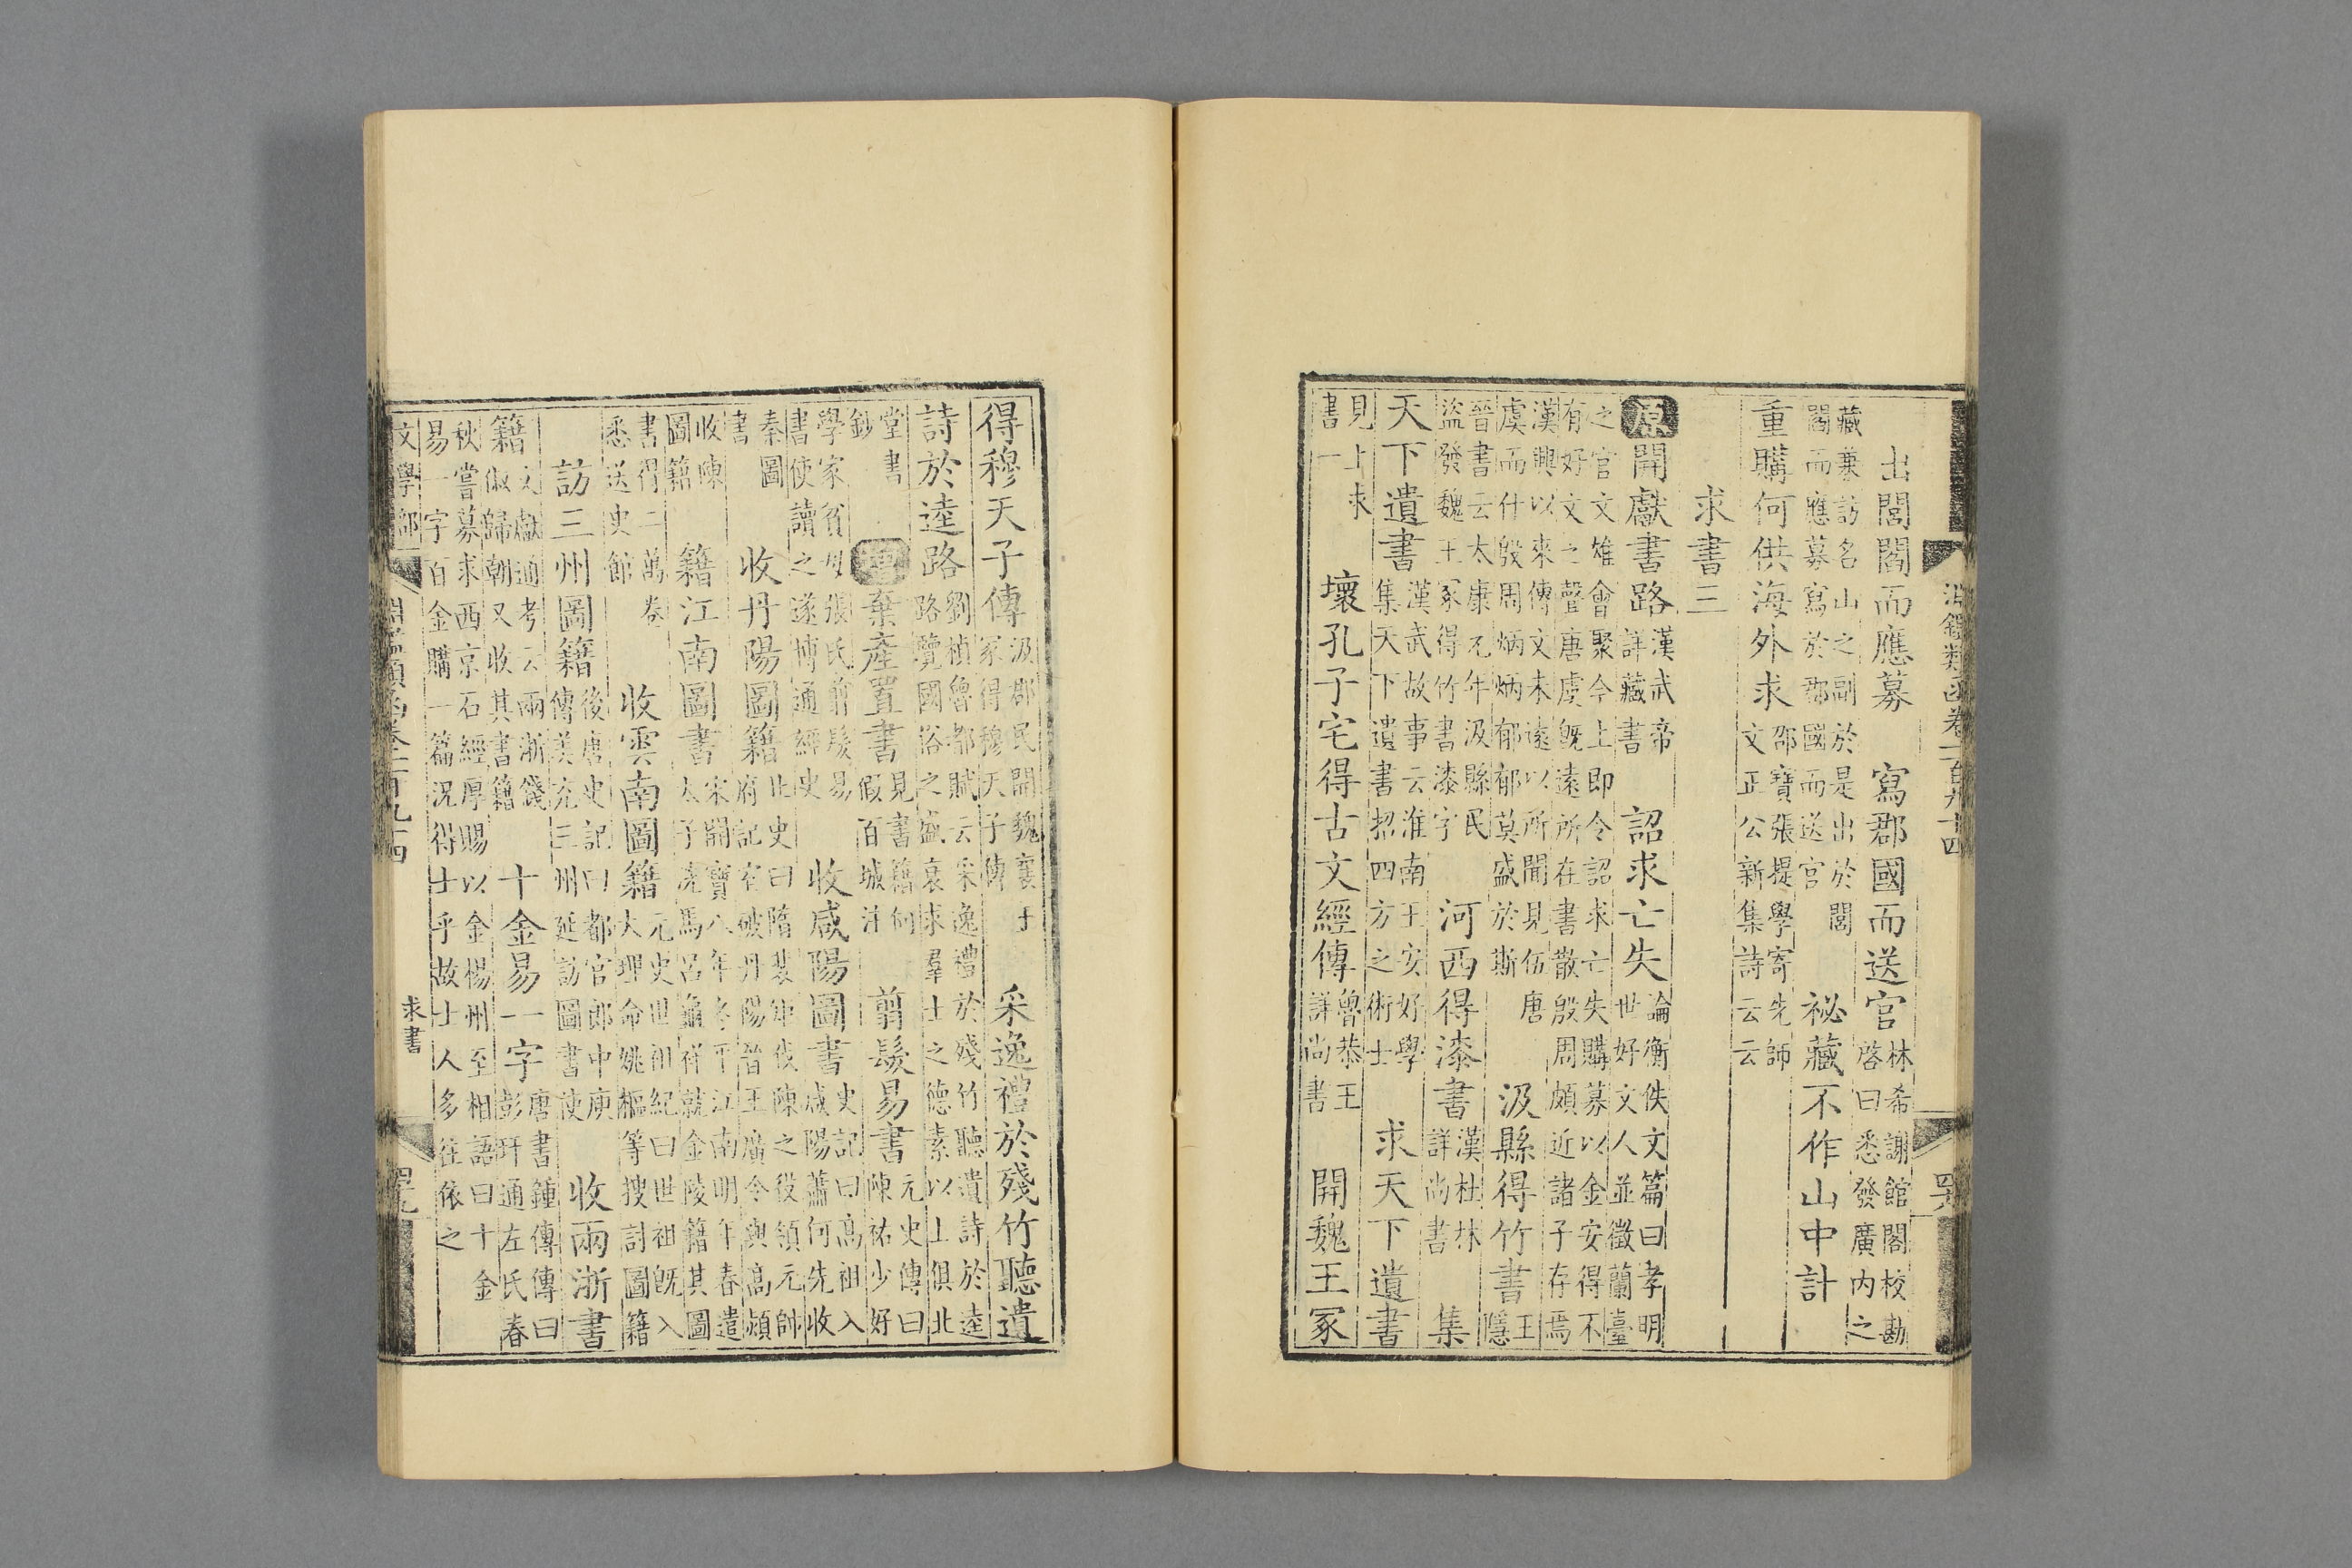 淵鑑類函卷一百九十四 四六
出閣閣而應募 寫郡國而送官 林希謝館閣校勘啓曰悉發廣內之
藏兼訪名山之副於是出於閣閣而應募寫於郡國而送官 祕藏不作山中計
重購何供海外求 邵寶張提學寄先師文正公新集詩云云
求書三
原 開獻書路 漢武帝詳藏書 詔求亡失 論衡佚文篇曰孝明世好文人並徵蘭臺
之官文雄會聚今上即令詔求亡失購募以金安得不有好文之聲唐虞旣遠所在書散殷周頗近諸子存焉
漢興以來傳文未遠以所聞見伍唐虞而什殷周炳炳郁郁莫盛於斯 汲縣得竹書 王隱
晉書云太康元年汲縣民盜發魏王冢得竹書漆字 河西得漆書 漢杜林詳尚書 集
天下遺書 漢武故事云淮南王安好學集天下遺書招四方之術士 求天下遺書
見上求書一 壞孔子宅得古文經傳 魯恭王詳尚書 開魏王冢
得穆天子傳 汲郡民開魏襄王冢得穆天子傳 采逸禮於殘竹聽遺
詩於逵路 劉楨魯都賦云采逸禮於殘竹聽遺詩於逵路覽國俗之盛衰求羣士之德素以上俱北
堂書鈔 增 棄產置書 見書籍何假百城注 翦髮易書 元史傳曰陳祐少好
學家貧母張氏剪髮易書使讀之遂博通經史 收咸陽圖書 史記曰高祖入咸陽蕭何先收
秦圖書 收丹陽圖籍 北史曰隋裴矩伐陳之役領元帥府記室破丹陽晉王廣令與高熲
收陳圖籍 籍江南圖書 宋開寶八年冬平江南明年春遣太子洗馬呂龜祥就金陵籍其圖
書得二萬卷悉送史館 收雲南圖籍 元史世祖紀曰世祖旣入大理命姚樞等搜訪圖籍
訪三州圖籍 後唐史記曰都官郎中庾傳美充三州延訪圖書使 收兩浙書
籍 文獻通考云兩浙錢俶歸朝又收其書籍 十金易一字 唐書鍾傳傳曰彭玕通左氏春
秋嘗募求西京石經厚賜以金楊州至相語曰十金易一字百金購一篇況得士乎故士人多往依之
文學部 淵鑑類函卷一百九十四 求書